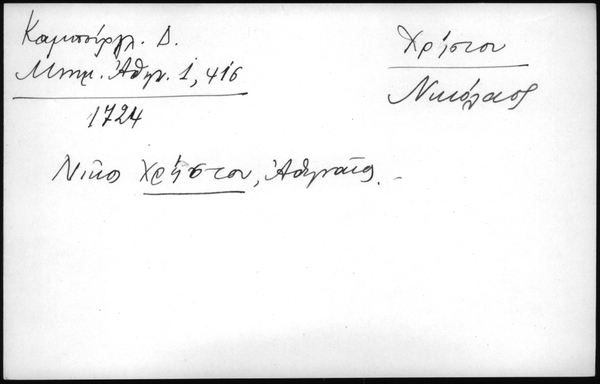 Καμπούρογλ. Δ.
Μνημ. Ἀθην. 1, 416
1724
Χρήστου
Νικόλαος
Νῖκος Χρήστου, Ἀθηναῖος.